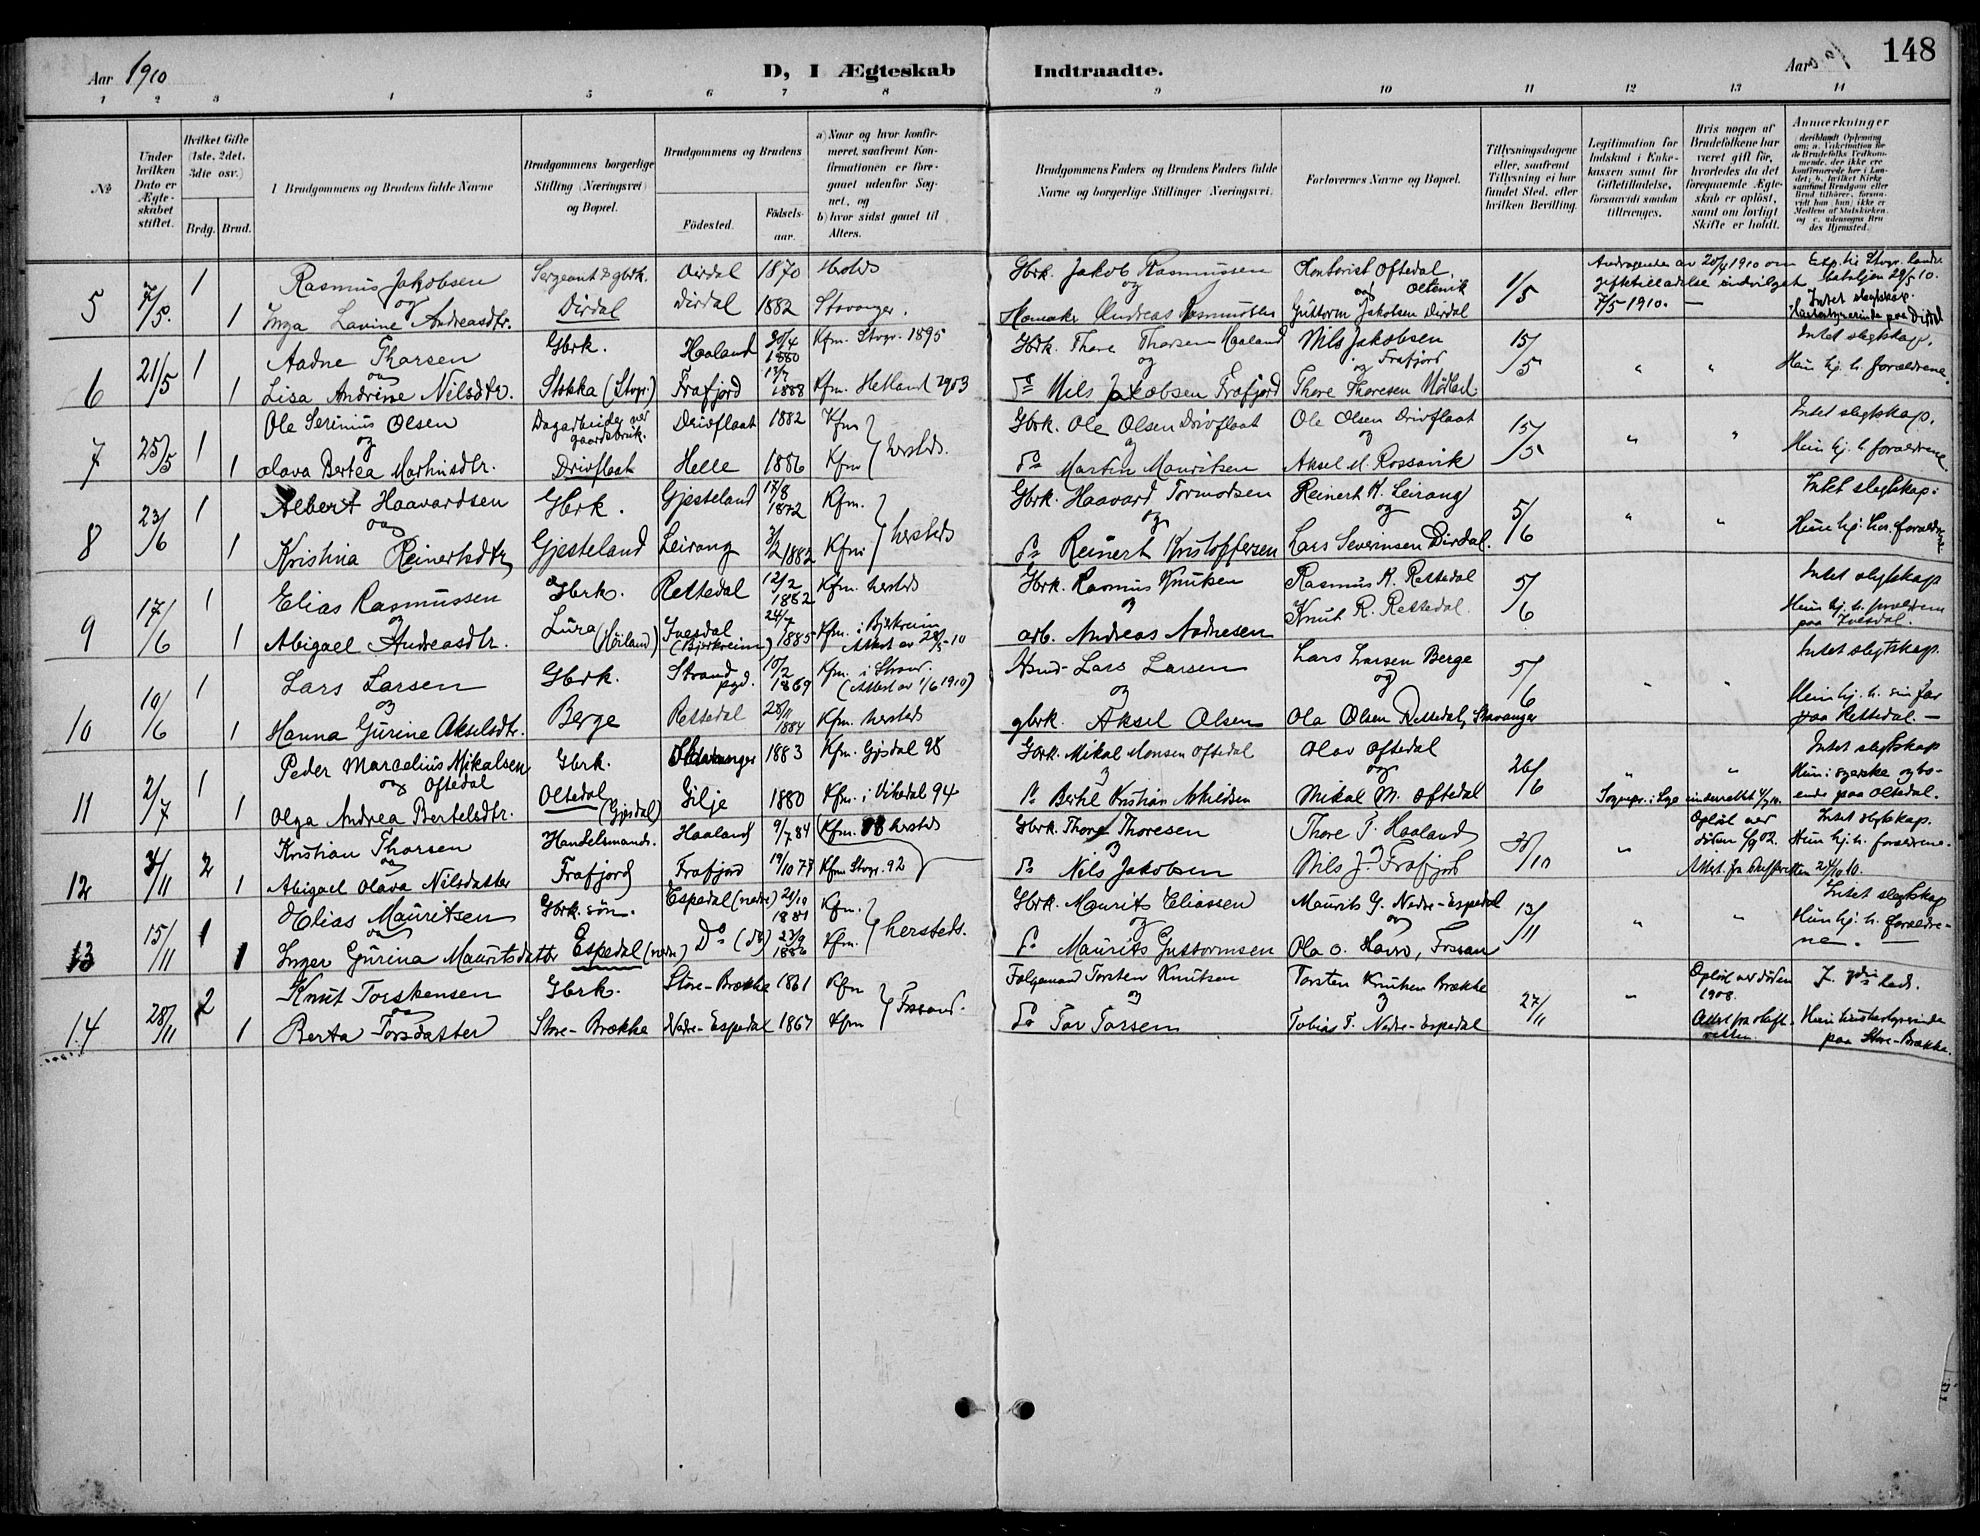 Aar 1910
D, I Ægteskab Indtraadte.
Aar 1910 148
1 2 3 4 5 6 7 8 9 10 11 12 13 14
№
Under hvilken Dato er Ægteskabet stiftet.
Hvilket Gifte (1ste, 2det, 3die osv.)
Brdg. Brud.
Brudgommens og Brudens fulde Navne
Brudgommens borgerlige Stilling (Næringsvei) og Bopæl.
Brudgommens og Brudens
Fødested. Fødsels-aar.
a) Naar og hvor konfirmeret, saafremt Konfirmationen er foregaaet udenfor Sognet, og
b) hvor sidst gaaet til Alters.
Brudgommens Faders og Brudens Faders fulde Navne og borgerlige Stillinger (Næringsvei).
Forlovernes Navne og Bopæl.
Tillysningsdagene eller, saafremt Tillysning ei har fundet Sted, efter hvilken Bevilling.
Legitimation for Indskud i Enkekassen samt for Giftetilladelse, forsaavidt saadan tiltrænges.
Hvis nogen af Brudefolkene har været gift før, hvorledes da det foregaaende Ægteskab er opløst, samt om lovligt Skifte er holdt.
Anmærkninger
5 7/5. 1 Rasmus Jakobsen Sergeant & gbrk. Dirdal 1870 Gbrk. Jakob Rasmussen Kontorist Oftedal, 1/5 Andragende av 20/4 1910 om
og Oltevik giftetilladelse indvilget
1 Inga Lavine Andreasdtr. Dirdal Dirdal 1882 Stavanger. Andreas Rasmussen Guttorm Jakobsen Dirdal 7/5 1910. — Intet slegtskap.
6 21/5 1 Aadne Thorsen Gbrk. Haaland 30/4 1880 Kfm. Stvgr. 1895 Gbrk. Thore Thorsen Haaland Nils Jakobsen 15/5 " " Intet slegtskap.
og og og Frafjord
1 Lisa Andrine Nilsdtr. Stokka (Stvgr.) Frafjord 1888 Kfm. Hetland 1903 Do Nils Jakobsen Frafjord Thore Thoresen Hun hj. h. forældrene.
7 25/5 1 Ole Serinius Olsen Dagarbeider ved gaardsbruk. Drivflaat 1882 Kfm Gbrk. Ole Olsen Drivflaat Ole Olsen Drivflaat 15/5 " " Intet slegtskap.
og hersteds. og og
1 Olava Bertea Martinsdtr. Drivflaat Helle 1886 Kfm Do Martin Mauritsen Aksel M. Rossavik Hun hj. h. forældrene.
8 23/6 1 Albert Haavardsen Gbrk. Gjesteland 17/8 1872 Kfm. Gbrk. Haavard Tormodsen Reinert K. Leirang 5/6 " " Intet slegtskap.
og hersteds og og
1 Kristina Reinertsdtr. Gjesteland Leirang 3/2 1882 Kfm. Do Reinert Kristoffersen Lars Severinsen Dirdal. Hun hj. hos forældrene.
9 17/6 1 Elias Rasmussen Gbrk. Rettedal 12/2 1882 Kfm. hersteds Gbrk. Rasmus Knutsen Rasmus K. Rettedal 5/6 Intet slegtskap
og og
1 Abigael Andreasdtr. Lura (Høiland) Ivesdal (Bjerkreim) 24/7 1885 Kfm. i Bjerkreim Attest av 28/5-10 arb. Andreas Aadnesen Knut R. Rettedal. Hun hj. h. forældrene paa Ivesdal.
10 19/6 1 Lars Larsen Gbrk. Strand pgd. 10/2 1869 Kfm. i Strand. (Attest av 1/6 1910) Lars Larsen Lars Larsen Berge 5/6 " " Intet slegtskap.
og og og
1 Hanna Gurine Akselsdtr. Berge Rettedal 1884 Kfm. hersteds gbrk. Aksel Olsen Ola Olsen Rettedal, Stavanger Hun hj. h. sin far paa Rettedal. —
11 2/7 1 Peder Marcelius Mikalsen Gbrk. Stavanger 1883 Kfm. Gjesdal 98 Gbrk. Mikal Monsen Oftedal Olav Oftedal 26/6 " " Intet slegtskap
og Oftedal og og
1 Olga Andrea Bertelsdtr. Oltedal (Gjesdal) Gilje 1880 Kfm. i Vikedal 94 Do Bertel Kristian Mikal M. Oftedal Hun: syerske og boende paa Oltedal.
12 4/11 2 Kristian Thorsen Handelsmand. Haaland 9/7 84 Kfm. 98 hersteds Gbrk. Thore Thoresen Thore T. Haaland /10 " Opløst ved døden 02. Intet slegtskap.
og og og Hun hj. h. forældrene.
1 Abigael Olava Nilsdatter Frafjord Frafjord 19/10 77 Kfm Stvgr. 92 Do Nils Jakobsen Nils J. Frafjord Attest fra Skifteretten 24/10 10.
13 15/11 1 Elias Mauritsen Gbrk. søn. Espedal (nedre) 1881 Kfm. Gbrk. Maurits Eliassen Maurits G. Nedre-Espedal 13/11 " " Intet slegtskap
og hersteds. og og
1 Inger Gurina Mauritsdatter Espedal (nedr.) Do (do) 23/9 1886 Kfm. Do Maurits Guttormsen Ola O. Fossan Hun hj. h. forældrene. —
14 28/11 2 Knut Torstensen Gbrk. Store-Brække 1861 Kfm Torsten Knutsen Torsten Knutsen Brække 27/11 " Opløst ved døden 1908.
og Fossand. og og
1 Berta Torsdatter Store-Brække Nedre-Espedal 1867 Kfm Do Tor Torsen Tobias T. Nedre-Espedal Attest fra skifteretten. Hun husbestyrerinde paa Store-Brække.